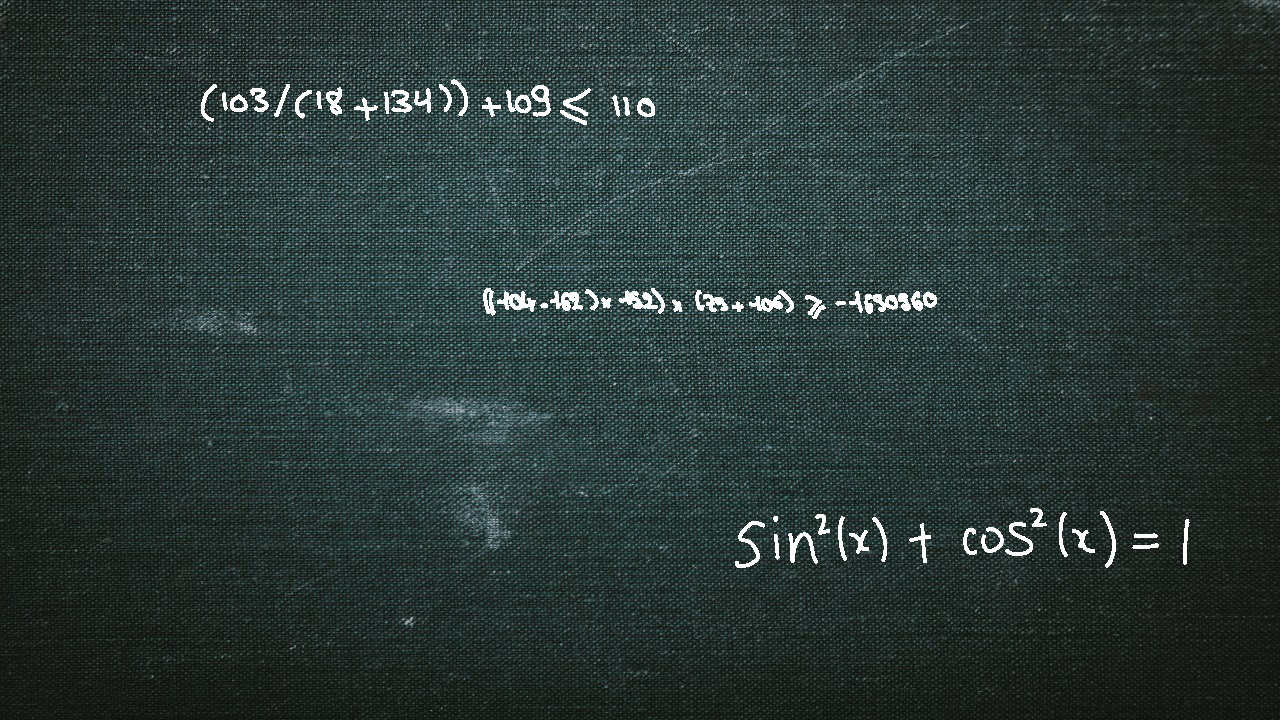 (103/(18+134)) + 109 ≤ 110
((104 - 162) × 152) × (79 + 106) ≥ -1630960
sin²(x) + cos²(x) = 1